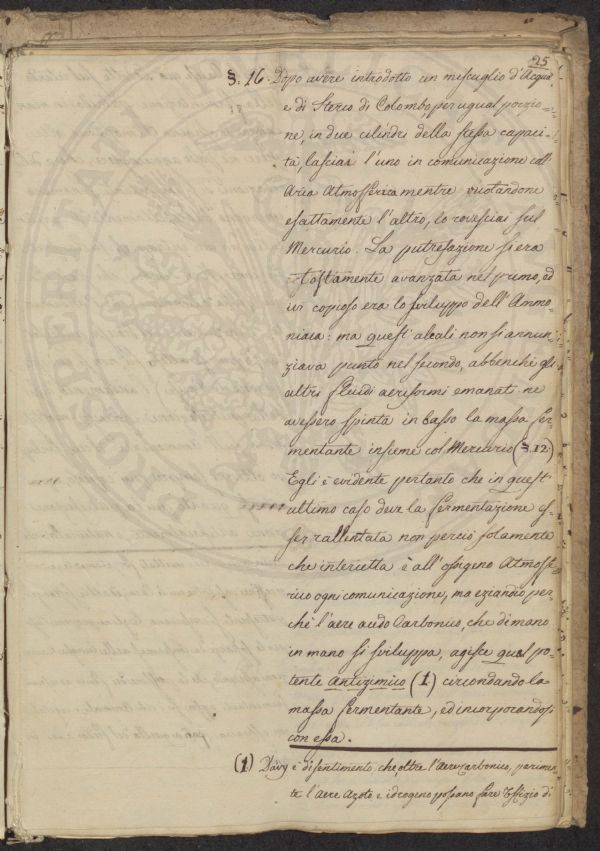 25
§. 16. Dopo avere introdotto un miscuglio d'Acqua
e di Sterco di Colombo per ugual porzio=
ne, in due cilindri della stessa capaci=
tà, lasciai l'uno in comunicazione coll'
Aria Atmosferica mentre vuotandone
esattamente l'altro, lo rovesciai sul
Mercurio. La putrefazione si era
tostamente avanzata nel primo, ed
ivi copioso era lo sviluppo dell'Ammo=
niaca: ma quest'alcali non si annun=
ziava punto nel secondo, abbenchè gli
altri fluidi aeriformi emanati ne
avessero spinta in basso la massa fer=
mentante insieme col Mercurio (§.12.)
Egli è evidente pertanto che in quest'
ultimo caso deve la fermentazione es=
ser rallentata non perciò solamente
che intercetta è all'ossigeno Atmosfe=
rico ogni comunicazione, ma eziandio per=
chè l'aere acido Carbonico, che di mano
in mano si sviluppa, agisce qual po=
tente Antizimico (1) circondando la
massa fermentante, ed incorporandosi
con essa.
(1) Davy è di sentimento che, oltre l'Aere Carbonico, parimen=
te l'Aere Azoto e idrogeno possano fare Uffizio di